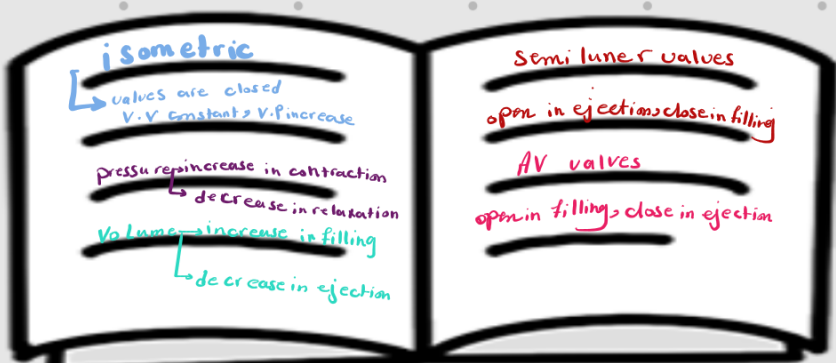 isometric
values are closed
V.V constant, V.P increase
pressure→increase in contraction
decrease in relaxation
Volume→increase in filling
decrease in ejection
Semi luner values
open in ejection, close in filling
AV valves
open in filling, close in ejection